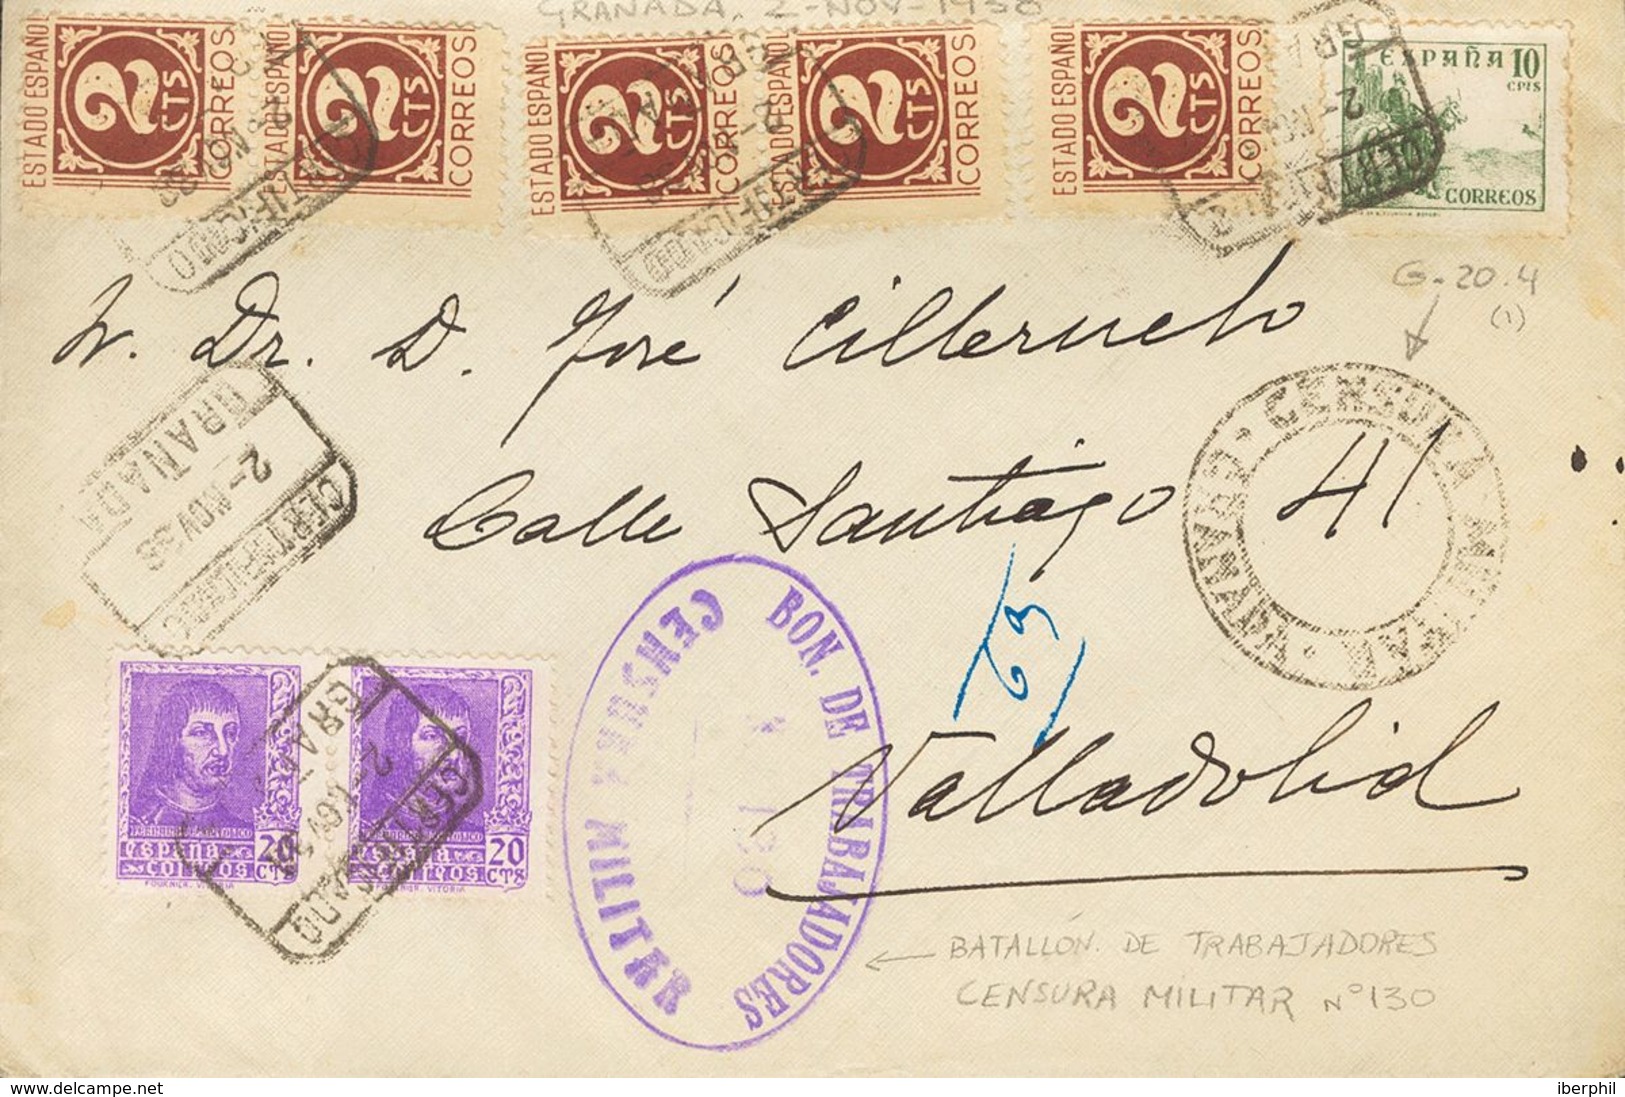 GRANADA, 2-NOV-1938
ESTADO ESPAÑOL 2 CTS CORREOS
ESTADO ESPAÑOL 2 CTS CORREOS
ESTADO ESPAÑOL 2 CTS CORREOS
ESTADO ESPAÑOL 2 CTS CORREOS
ESTADO ESPAÑOL 2 CTS CORREOS
ESPAÑA 10 CTS
CORREOS
CERTIFICADO
CERTIFICADO
CERTIFICADO
G-20.4
(1)
Dr. D. José Cilleruelo
GRANADA
2-NOV 38
CERTIFICADO
CENSURA MILITAR · GRANADA
Calle Santiago 41
63
Valladolid
BON. DE TRABAJADORES
CENSURA MILITAR
130
FERNANDO EL CATOLICO
ESPAÑA 20
CORREOS CTS
FOURNIER. VITORIA
ESPAÑA 20
CORREOS CTS
FOURNIER. VITORIA
GRA
CERTIFICADO
← BATALLÓN. DE TRABAJADORES
CENSURA MILITAR Nº 130
delcampe.net
iberphil